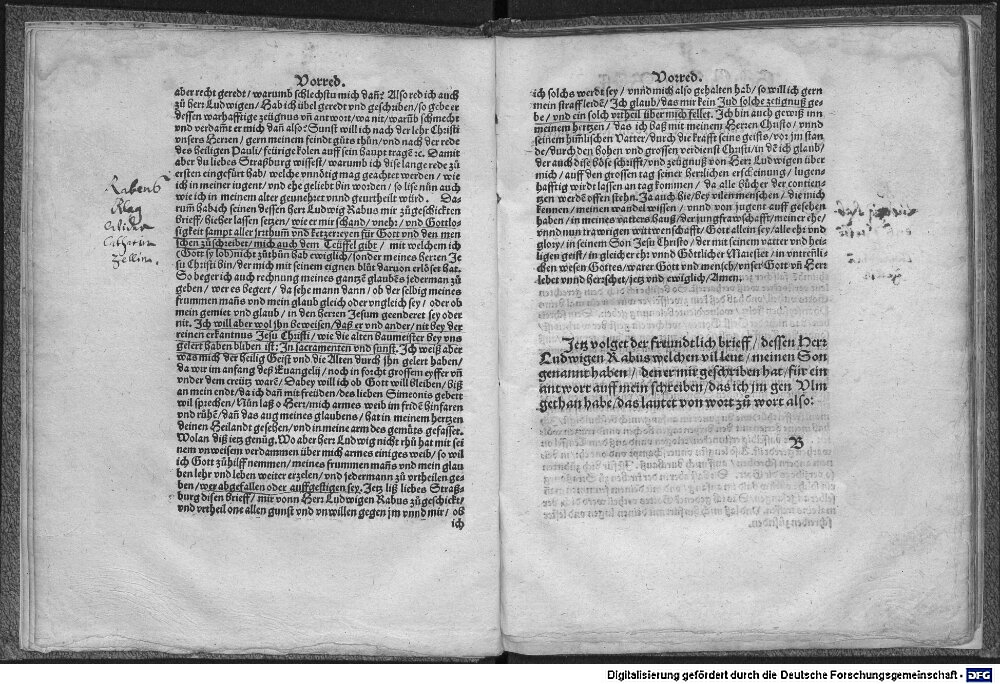 Vorred.
aber recht geredt / warumb schlechstu mich dañ? Also red ich auch
zů herr Ludwigen / Hab ich übel geredt vnd geschriben / so gebe er
dessen warhafftige zeügnus vñ antwort / wa nit / warũb schmecht
vnd verdampt er mich dañ also? Sunst will ich nach der lehr Christi
vnsers Herren / gern meinem feindt gůts thůn / vnd nach der rede
des heiligen Pauli / feürige kolen auff sein haupt tragẽ ꝛc. Damit
aber du liebes Straßburg wissest / warumb ich dise lange rede zů
ersten eingefürt hab / welche vnnötig mag geachtet werden / wie
ich in meiner iugent / vnd ehe geliebt bin worden / so lise nůn auch
wie ich in meinem alter geunehret vnnd geurtheilt würd. Da-
rumb hab ich seinen dessen herr Ludwig Rabus mir zůgeschickten
brieff / hieher lassen setzen / wie er mir schand / vnehr / vnd Gottlo-
sigkeit sampt aller jrrthum̃ vnd ketzereyen für Gott vnd den men
schen zůschreibet / mich auch dem Teüffel gibt / mit welchem ich
(Gott sy lob) nicht zůthůn hab ewiglich / sonder meines herren Je
su Christi bin / der mich mit seinem eignen blůt daruon erlöset hat.
So beger ich auch rechnung meines gantzẽ glaubẽs jederman zů
geben / wer es begert / da sehe mann dann / ob der selbig meines
frummen mañs vnd mein glaub gleich oder vngleich sey / oder ob
mein gemiet vnd glaub / in den herren Jesum geenderet sey oder
nit. Jch will aber wol jhn beweisen / daß er vnd ander / nit bey der
reinen erkantnus Jesu Christi / wie die alten baumeister bey vns
gelert haben bliben ist: Jn sacramenten vnd sunst. Jch weiß aber
was mich der heilig Geist vnd die Alten durch jhn gelert haben /
da wir im anfang deß Euangelij / noch in forcht grossem eyffer vñ
vnder dem creütz warẽ / Dabey will ich ob Gott will bleiben / biß
an mein endt / da ich dañ mit freüden / des lieben Simeonis gebett
wil sprechen / Nůn laß o Herr / mich armes weib im fridẽ hinfaren
vnd růhẽ / dañ das aug meines glaubens / hat in meinem hertzen
deinen Heilandt gesehen / vnd in meine arm des gemůts gefasset.
Wolan diß ietz genůg. Wo aber herr Ludwig nicht rhů hat mit sei
nem vnweisem verdammen über mich armes einiges weib / so wil
ich Gott zůhilff nemmen / meines frummen mañs vnd mein glau
ben lehr vnd leben weiter erzelen / vnd jederman zů vrtheilen ge-
ben / wer abgefallen oder auffgestigen sey. Jetz liß liebes Straß-
burg disen brieff / mir vonn Herr Ludwigen Rabus zůgeschickt /
vnd vrtheil one allen gunst vnd vnwillen gegen jm vnnd mir / ob
ich
Rabens
Klag
Catharin
Zellin.
Vorred.
ich solchs werdt sey / vnnd mich also gehalten hab / so will ich gern
mein straff leidẽ / Jch glaub / das mir kein Jud solche zeügnuß ge-
be / vnd ein solch vrtheil über mich fellet. Jch bin auch gewiß inn
meinem hertzen / das ich baß mit meinem Herren Christo / vnnd
seinem himlischen Vatter / durch die krafft seins geists / vor jm stan
de / durch den hohen vnd grossen verdienst Christi / in dẽ ich glaub /
der auch dise böse schrifft / vnd zeügnuß von Herr Ludwigen über
mich / auff den grossen tag seiner herrlichen erscheinung / lugen-
hafftig wird lassen an tag kommen / da alle bücher der conscien-
tzen werdẽ offen stehn. Ja auch hie / bey vilen menschen / die mich
kennen / meinen wandel wissen / vnnd von jugent auff gesehen
haben / in meines vatters hauß / der jungfrawschafft / meiner ehe /
vnnd nun trawrigen wittwenschafft / Gott allein sey / alle ehr vnd
glory / in seinem Son Jesu Christo / der mit seinem vatter vnd hei-
ligen geist / in gleicher ehr vnnd Göttlicher Maiestet / in vntreñli-
chen wesen Gottes / warer Gott vnd mensch / vnser Gott vñ Herr
lebet vnnd herschet / jetz vnd ewiglich / Amen.
Jetz volget der freundtlich brieff / dessen Herr
Ludwigen Rabus welchen vil leut / meinen Son
genannt haben / den er mir geschriben hat / für ein
antwort auff mein schreiben / das ich jm gen Vlm
gethan habe / das lautet von wort zů wort also:
B
Digitalisierung gefördert durch die Deutsche Forschungsgemeinschaft - DFG